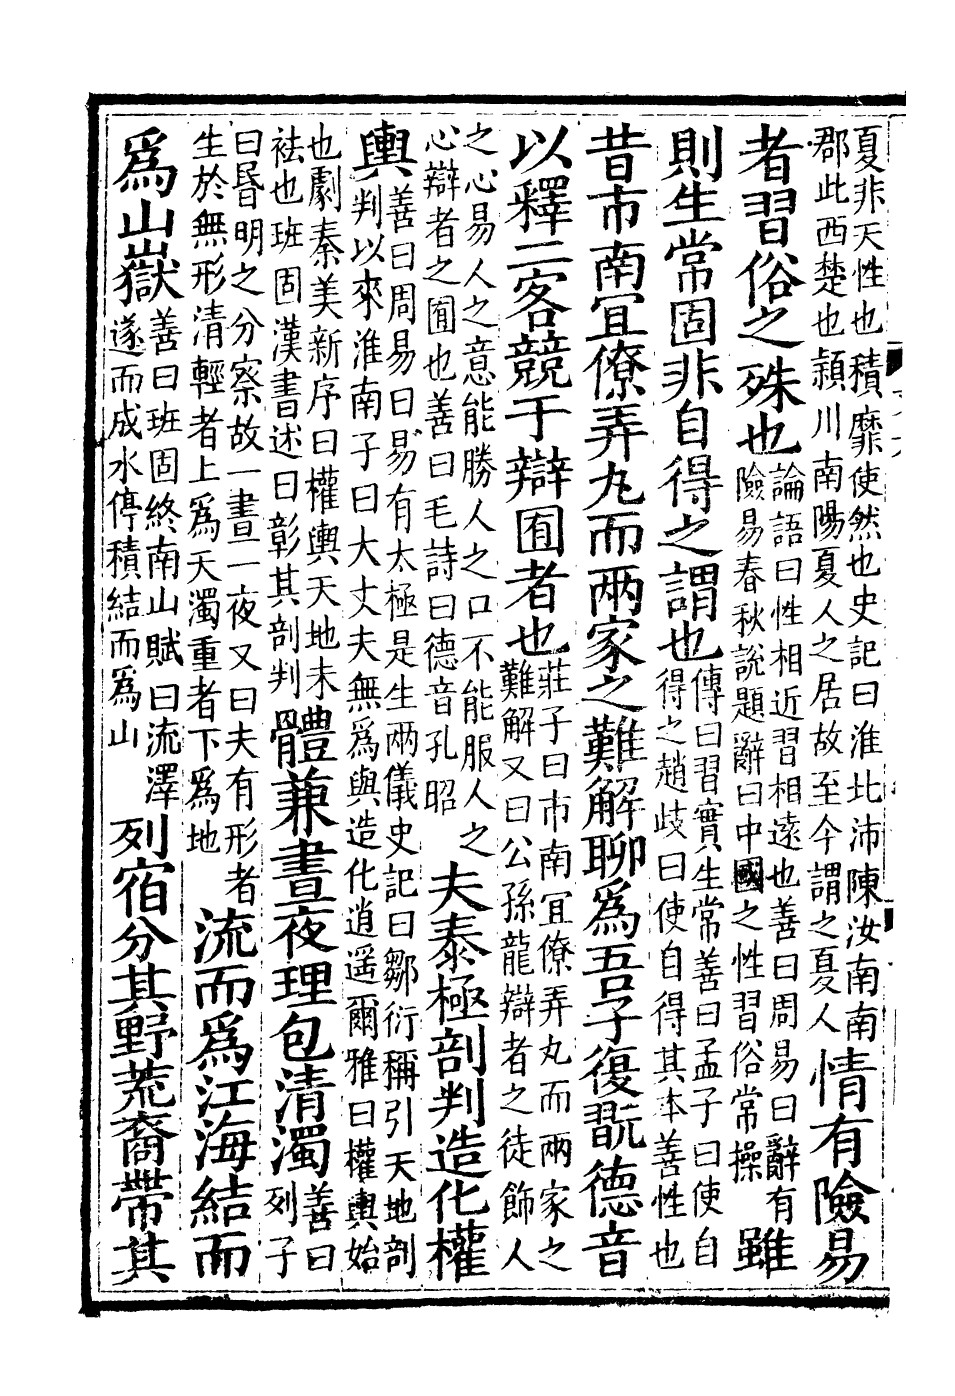 夏非天性也積靡使然也史記曰淮北沛陳汝南南
郡此西楚也潁川南陽夏人之居故至今謂之夏人
情有險易
者習俗之殊也
論語曰性相近習相遠也善曰周易曰辭有
險易春秋說題辭曰中國之性習俗常操
雖
則生常固非自得之謂也
傳曰習實生常善曰孟子曰使自
得之趙歧曰使自得其本善性也
昔市南宜僚弄丸而兩家之難解聊爲吾子復翫德音
以釋二客競于辯囿者也
莊子曰市南宜僚弄丸而兩家之
難解又曰公孫龍辯者之徒飾人
之心易人之意能勝人之口不能服人之
心辯者之囿也善曰毛詩曰德音孔昭
夫泰極剖判造化權
輿
善曰周易曰易有太極是生兩儀史記曰鄒衍稱引天地剖
判以來淮南子曰大丈夫無爲與造化逍遥爾雅曰權輿始
也劇秦美新序曰權輿天地未
袪也班固漢書述曰彰其剖判
體兼晝夜理包清濁
善曰
列子
曰昬明之分察故一晝一夜又曰夫有形者
生於無形清輕者上爲天濁重者下爲地
流而爲江海結而
爲山嶽
善曰班固終南山賦曰流澤
遂而成水停積結而爲山
列宿分其野荒裔帶其